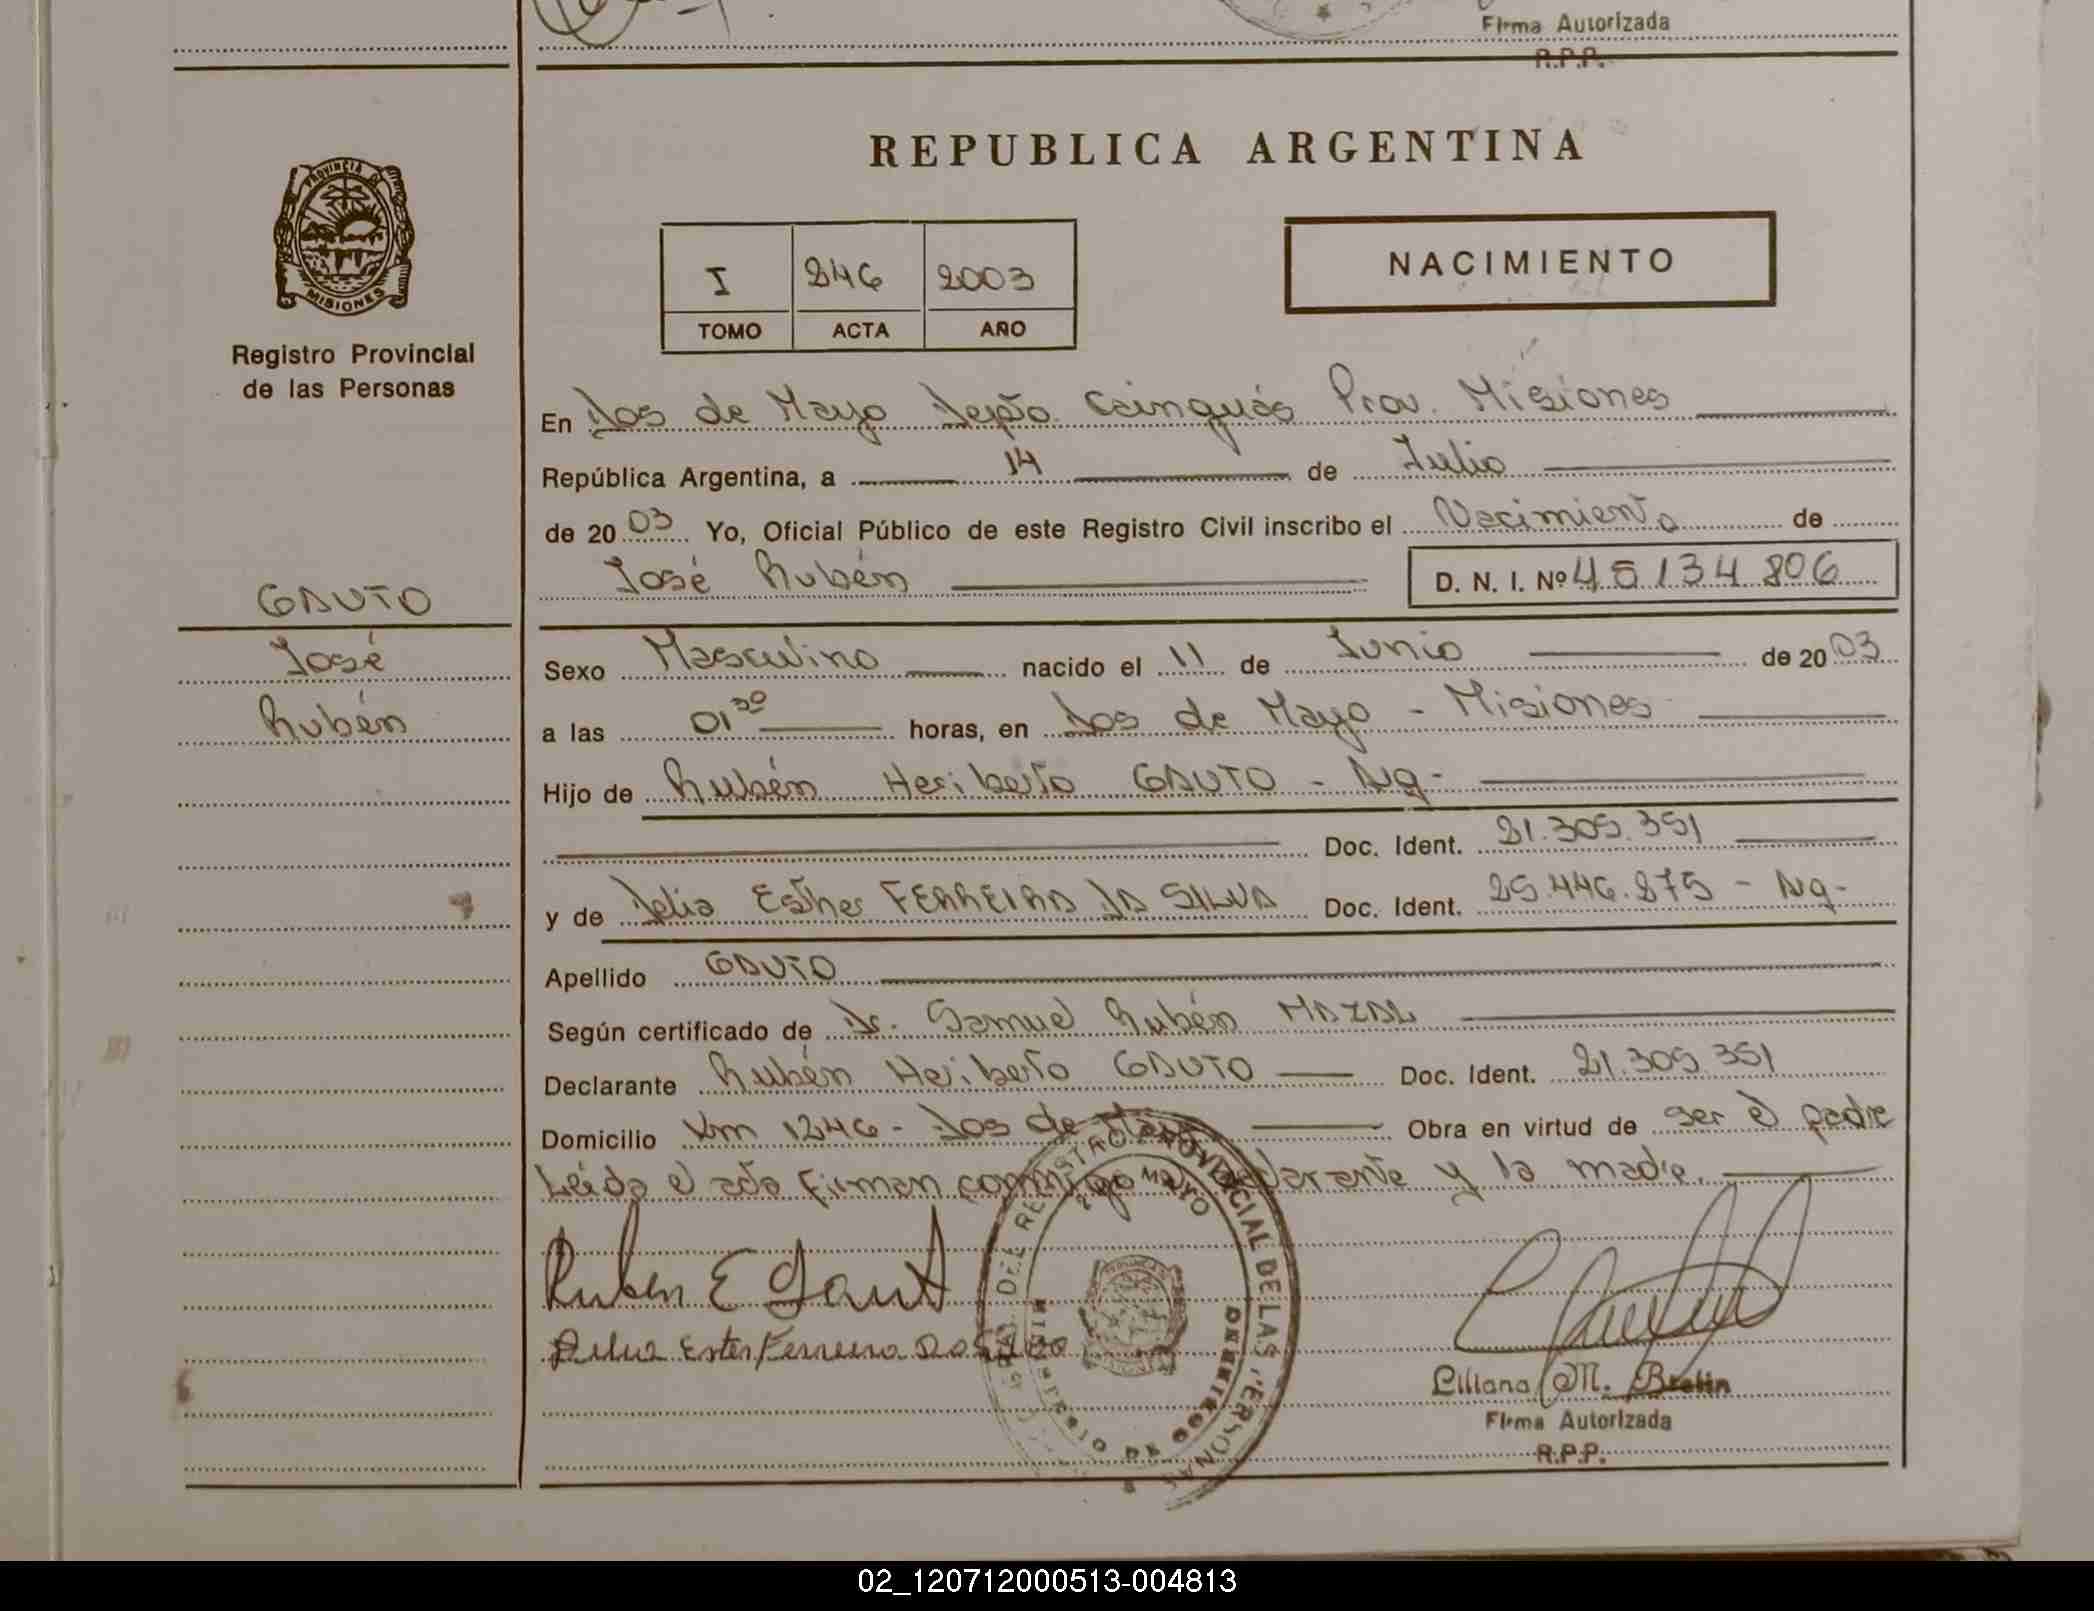 Firma Autorizada
R.P.P.
REPUBLICA ARGENTINA
PROVINCIA DE
MISIONES
Registro Provincial
de las Personas
I 246 2003
TOMO ACTA AÑO
NACIMIENTO
En Dos de Mayo Depto. Cainguás Prov. Misiones
República Argentina, a 14 de Julio
de 2003 Yo, Oficial Público de este Registro Civil inscribo el Nacimiento de
José Rubén D. N. I. Nº 45.134.806
GAUTO
José
Rubén
Sexo Masculino nacido el 11 de Junio de 2003
a las 01 30 horas, en Dos de Mayo - Misiones
Hijo de Rubén Heriberto GAUTO - Ng-
Doc. Ident. 21.305.351
y de Delia Esther FERREIRA DA SILVA Doc. Ident. 25.446.875 - Ng-
Apellido GAUTO
Según certificado de Dr. Samuel Rubén MAZAL
Declarante Rubén Heriberto GAUTO Doc. Ident. 21.305.351
Domicilio Km 1246 - Dos de Mayo Obra en virtud de ser el padre
Leída el acta firman conmigo declarante y la madre.
REGISTRO PROVINCIAL DE LAS PERSONAS
2 MAYO
MISIONES
Ruben E Gaut
Delia Ester Ferreira Da Silva
Liliana M. Brelin
Firma Autorizada
R.P.P.
02_120712000513-004813